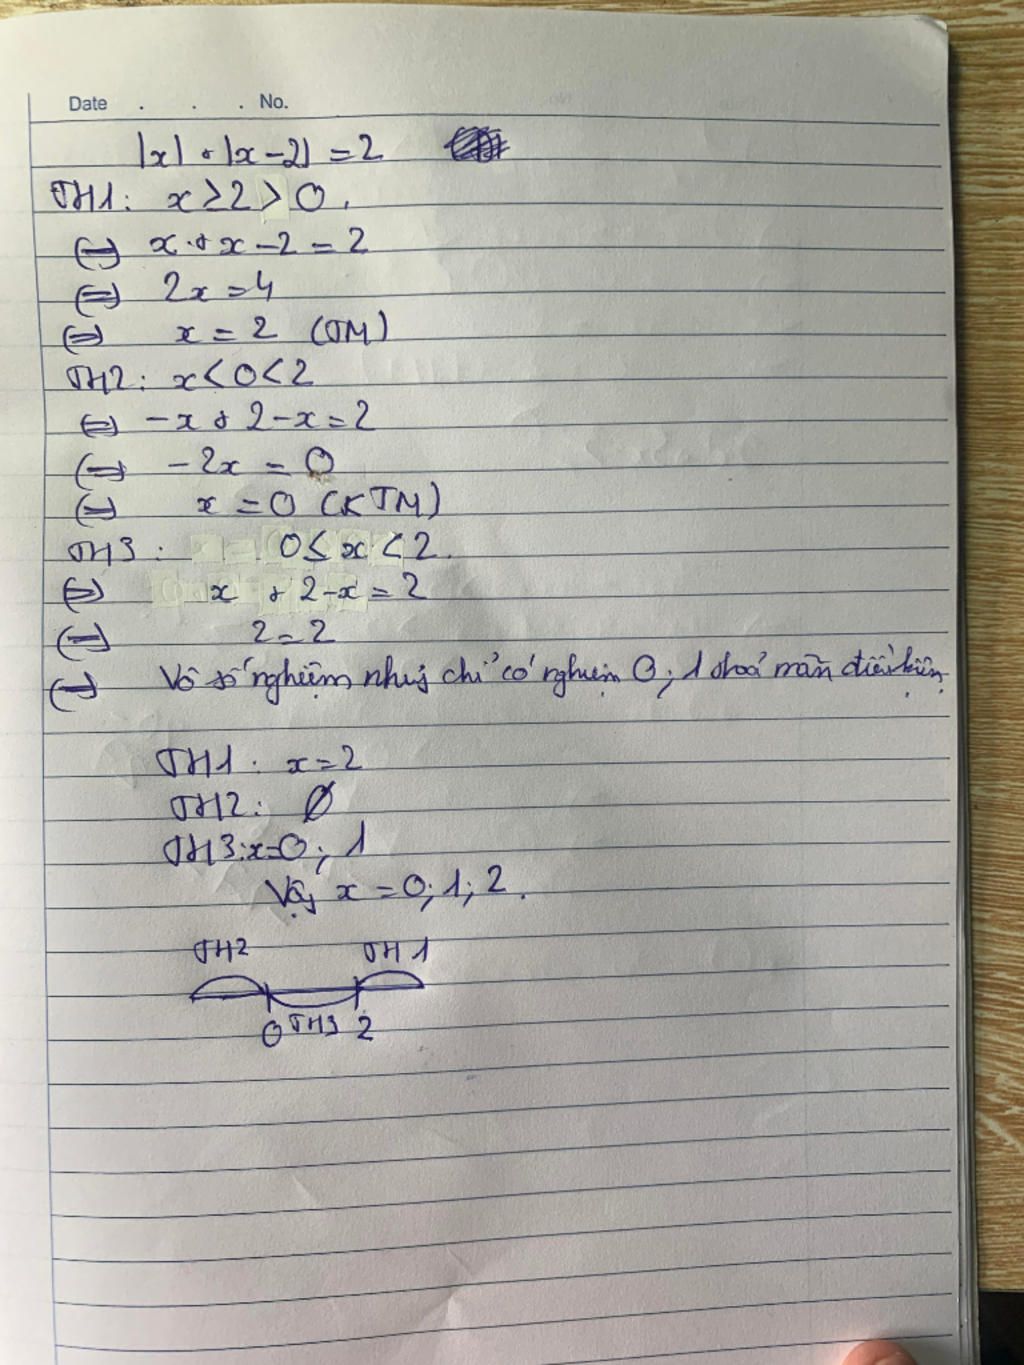 Date . . . No.
|x| + |x-2| = 2
TH1: x ≥ 2 > 0.
(=) x + x - 2 = 2
(=) 2x = 4
(=) x = 2 (TM)
TH2: x < 0 < 2
(=) -x + 2 - x = 2
(=) -2x = 0
(=) x = 0 (KTM)
TH3: 0 ≤ x < 2.
(=) x + 2-x = 2
(=) 2 = 2
(=) Vô số nghiệm nhưg chỉ có nghiệm 0; 1 thoả mãn điều kiện
TH1: x = 2
TH2: Ø
TH3: x=0; 1
Vậy x = 0; 1; 2.
TH2 TH1
0 TH3 2